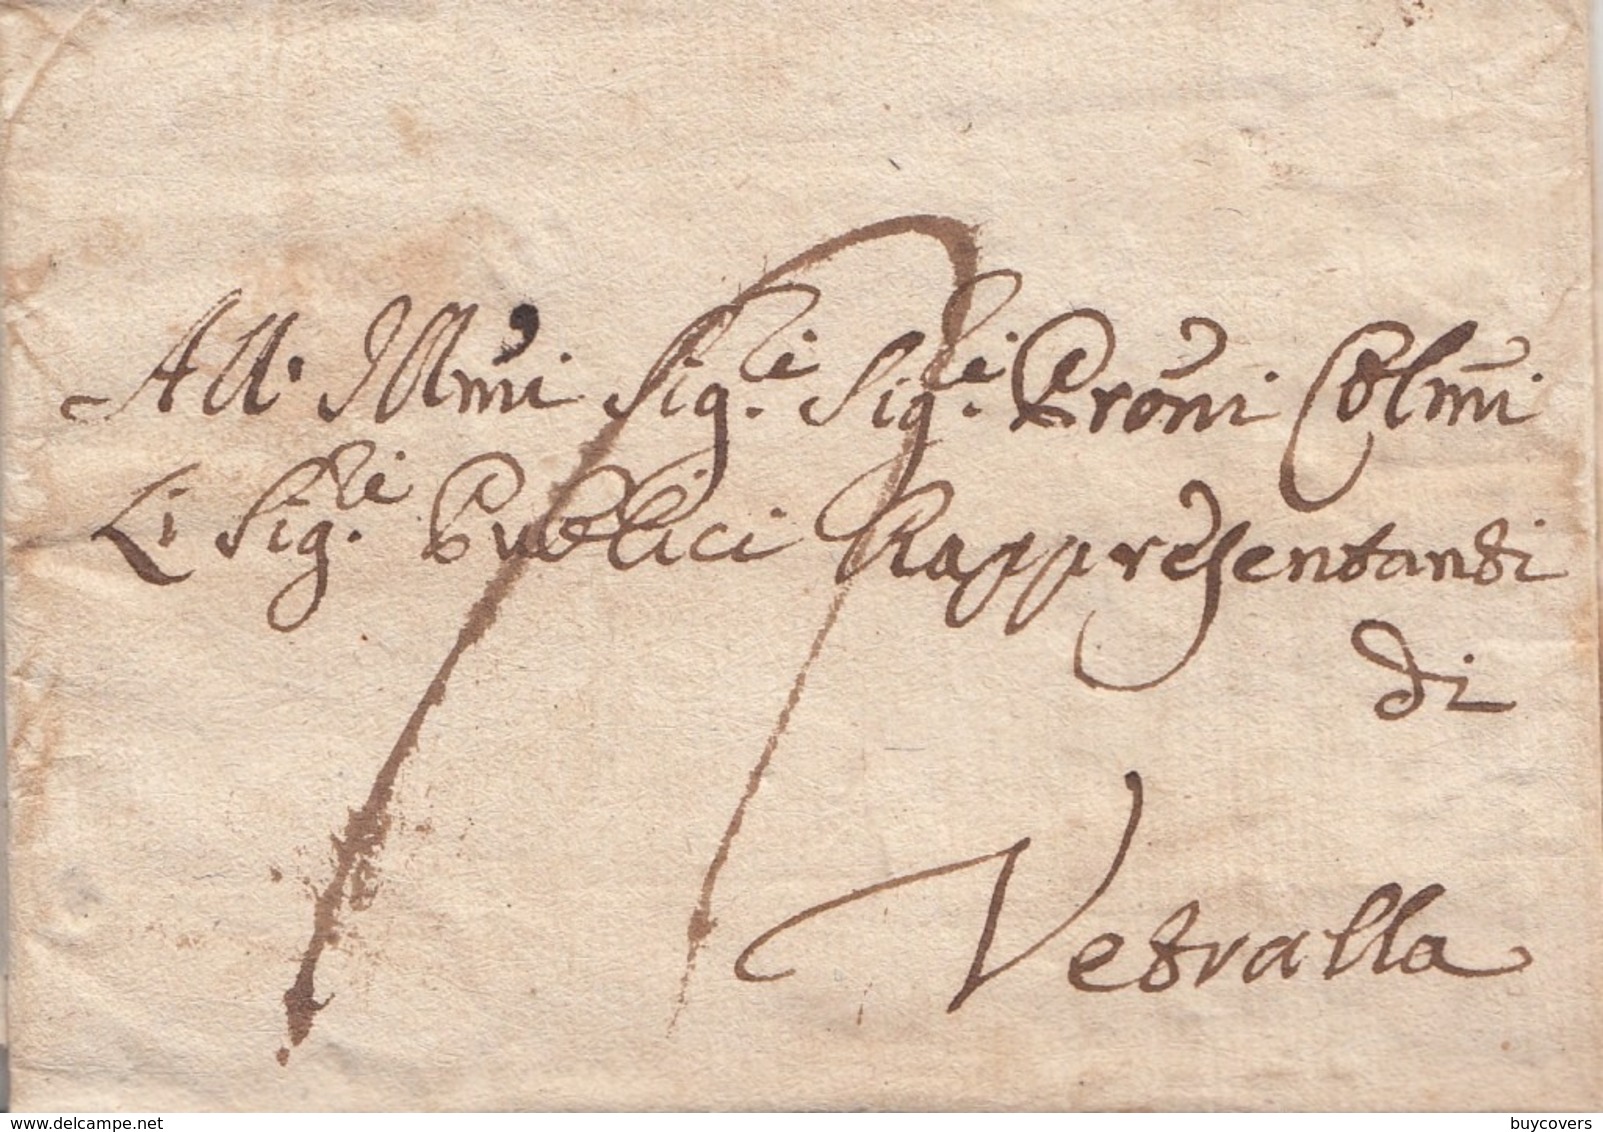 All' Illm̃i Sig.ri Sig.ri P̃roñi Colm̃i
Li Sig.ri Publici Rappresentanti
di
Vetralla
delcampe.net
buycovers